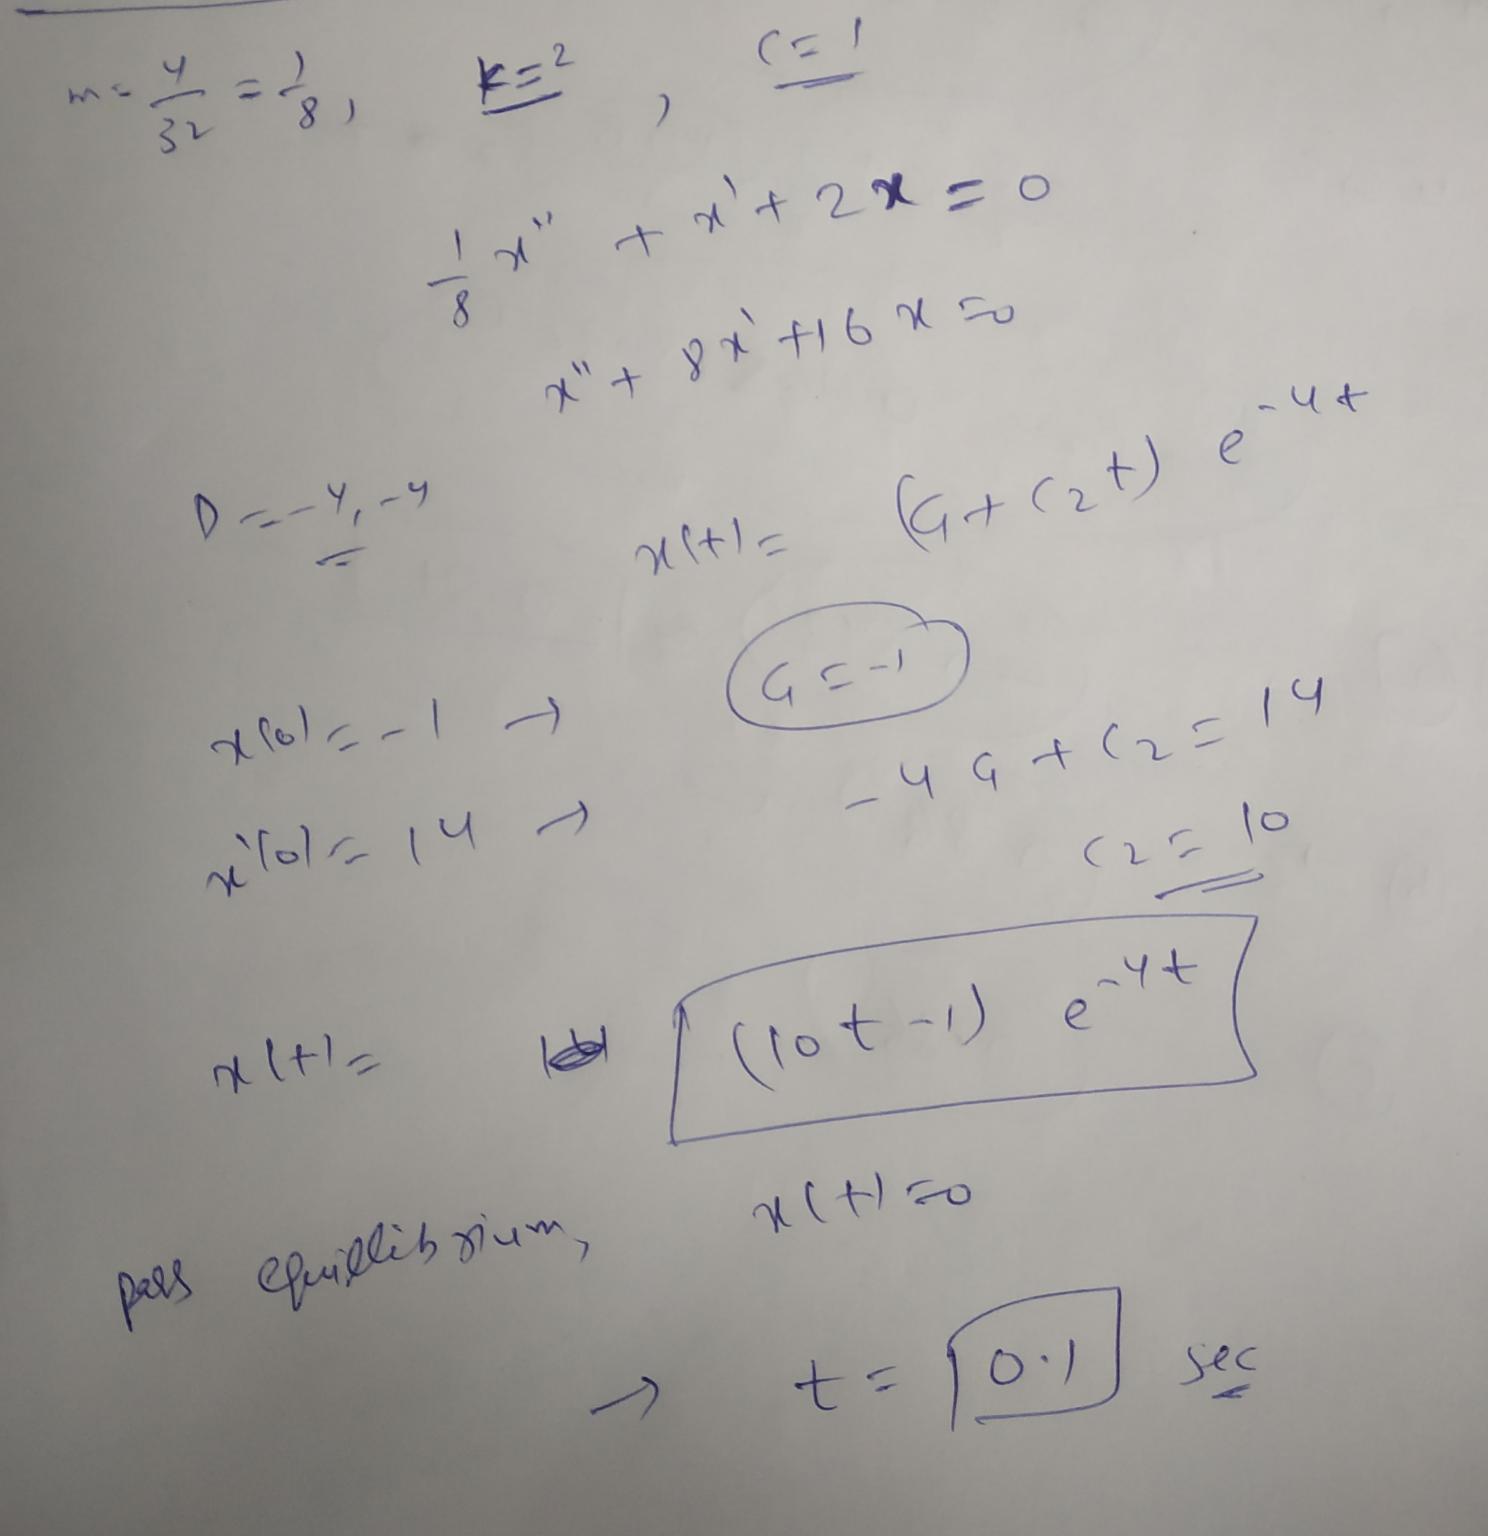 m = 4/32 = 1/8, k=2, C=1
1/8 x'' + x' + 2x = 0
x'' + 8x' + 16x = 0
D = -4, -4
x(t) = (C1 + C2t) e^-4t
x(0) = -1 → C1 = -1
x'(0) = 14 → -4C1 + C2 = 14
C2 = 10
x(t) = (10t - 1) e^-4t
pass equillibrium, x(t) = 0
→ t = 0.1 sec